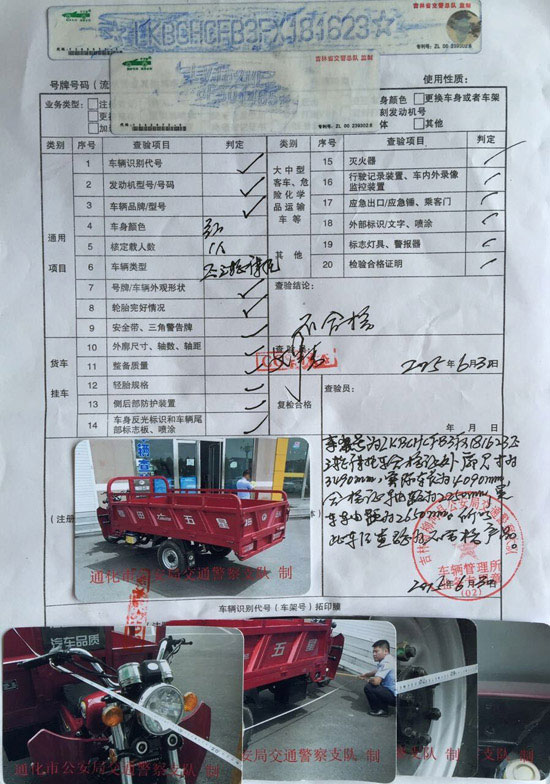 吉林省支警总队 监制
LKBGHCFB3FX184623☆
专利号: ZL 00 239302.8
吉林省支警总队 监制
专利号: ZL 00 239302.8
号牌号码(流
使用性质:
业务类型:
车身颜色 □更换车身或者车架
刻发动机号
体 □其他
类别 序号 查验项目 判定 类别 序号 查验项目 判定
通用项目
1 车辆识别代号
2 发动机型号/号码
3 车辆品牌/型号
4 车身颜色 红
5 核定载人数 1人
6 车辆类型 正三轮摩托
7 号牌/车辆外观形状
8 轮胎完好情况
9 安全带、三角警告牌
货车挂车
10 外廓尺寸、轴数、轴距
11 整备质量
12 轮胎规格
13 侧后部防护装置
14 车身反光标识和车辆尾部标志板、喷涂
大中型客车、危险化学品运输车等
15 灭火器
16 行驶记录装置、车内外录像监控装置
17 应急出口/应急锤、乘客门
18 外部标识/文字、喷涂
其他
19 标志灯具、警报器
20 检验合格证明
查验结论:
不合格
查验员:
2015年6月30日
复检合格
查验员:
合格证外廓尺寸为
3490mm, 实际长为4090mm
合格证轴距为2250mm,
轴距为2650mm
车辆管理所
(02)
2015年6月30日
(注册
五星
通化市公安局交通警察支队 制
车辆识别代号(车架号)拓印膜
汽车品质
通化市公安局交通警察支队 制
五星
安局交通警察支队 制
警察支队 制